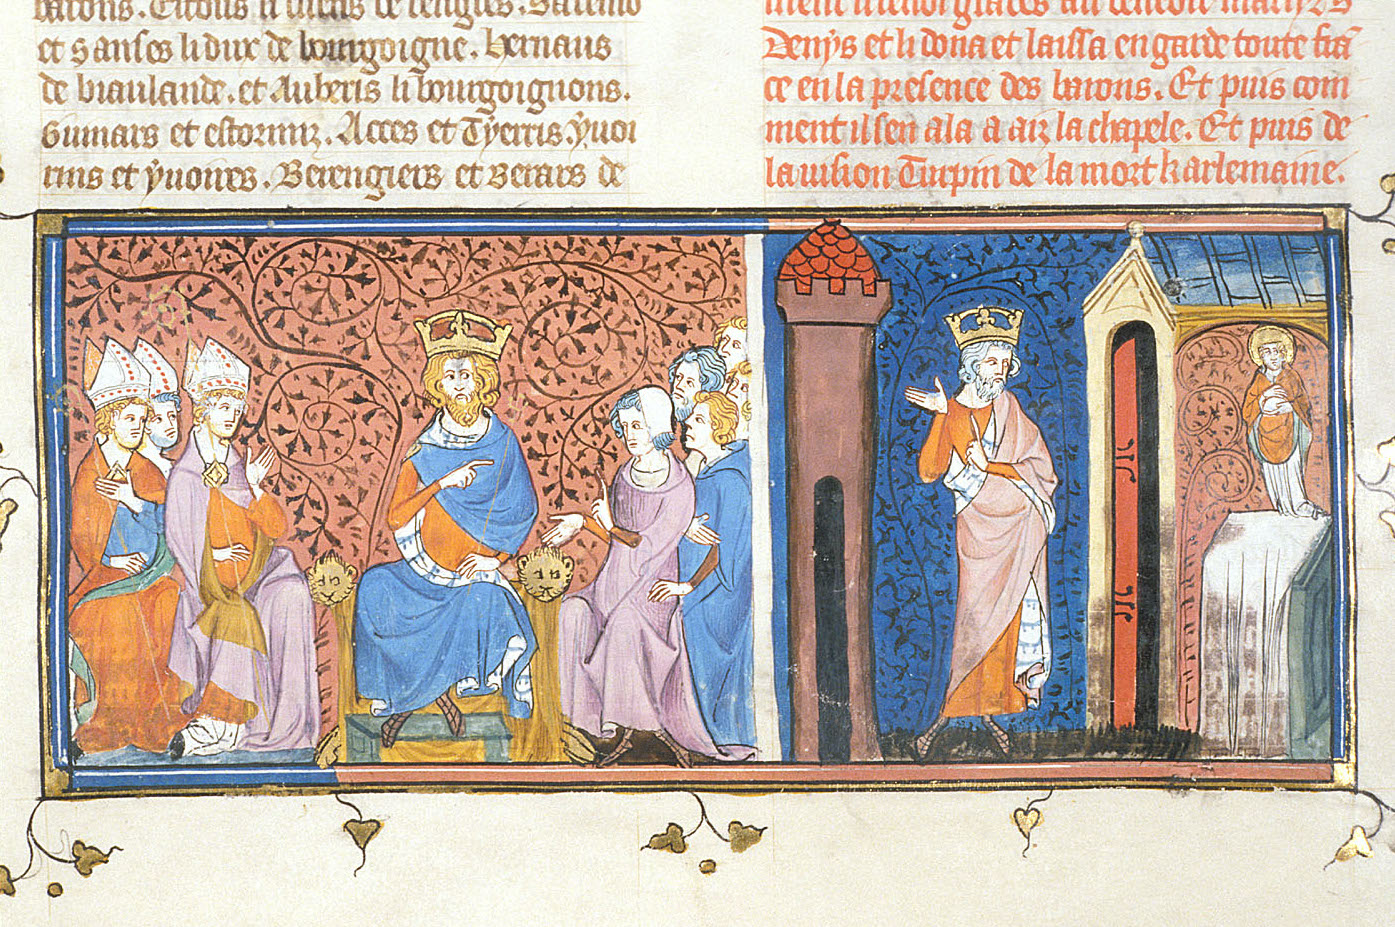 barons. Citous li quens de lengres. Salemo
et Sanses li dux de bourgoigne. hernaus
de biaulande. et Auberis li bourgoignons.
Guinars et estormiz. Acces et Tyerris. yuoi
rins et yuoires. Berengiers et Berars de
denys et li dona et laissa en garde toute fra
ce en la presence des barons. Et puis com
ment il sen ala a aiz la chapele. Et puis de
la uision Turpin de la mort karlemaine.